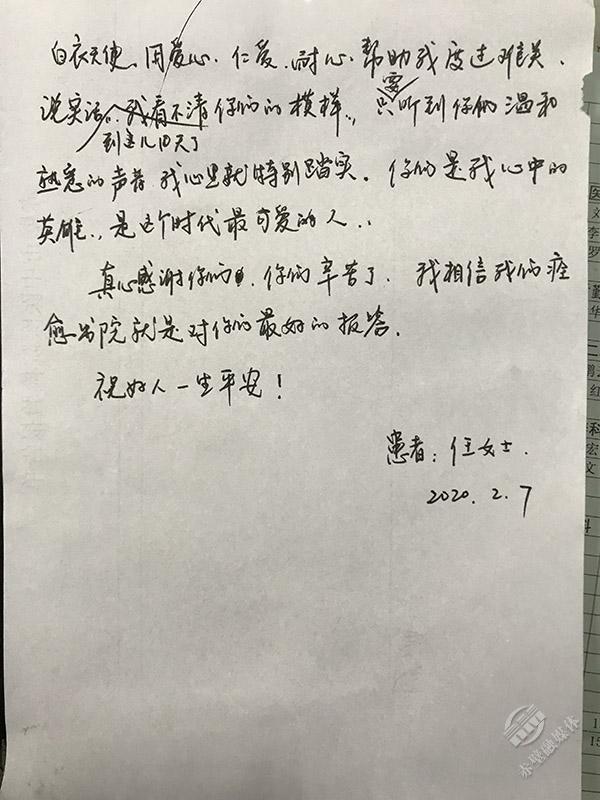 白衣天使、用爱心、仁爱、耐心、帮助我度过难关、
说实话、到这儿10天了我看不清你们的模样、, 只要听到你们温和
熟悉的声音 我心里就特别踏实。你们是我心中的
英雄、, 是这个时代最可爱的人、,
真心感谢你们、你们辛苦了、我相信我们痊
愈出院就是对你们最好的报答。
祝好人一生平安!
患者: 任女士.
2020.2.7
医
文
李
罗
勤
华
二
红
科
宏
文
科
赤壁融媒体